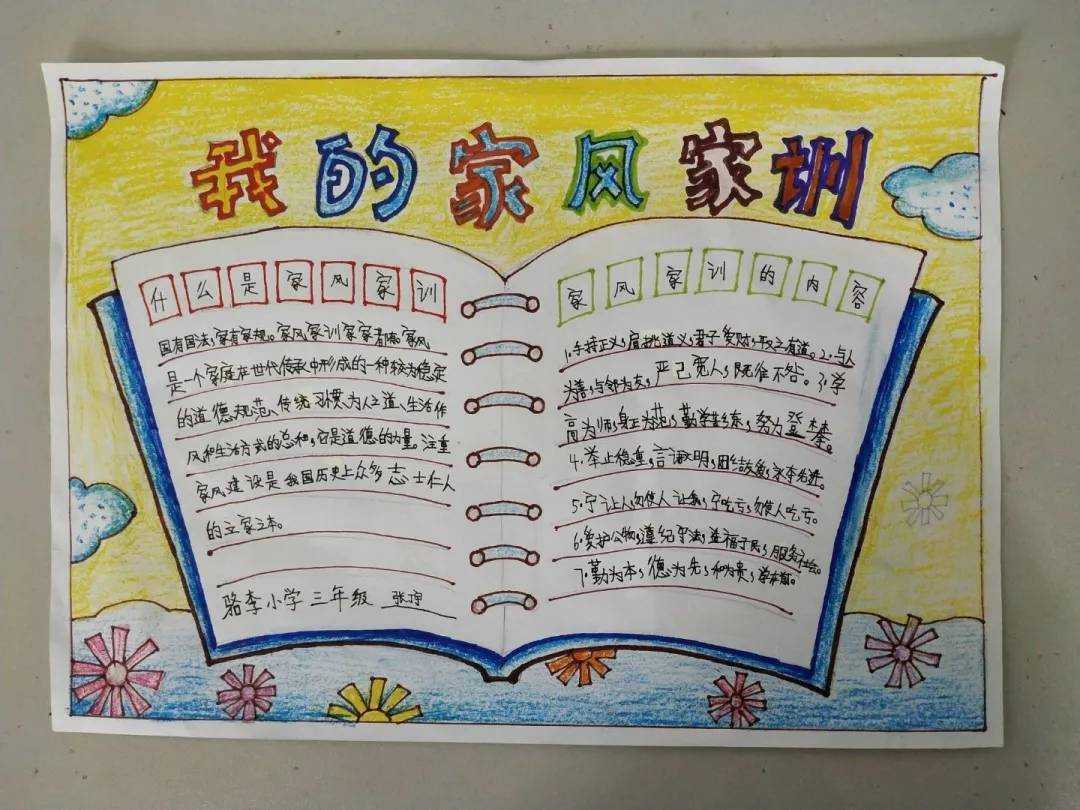 我的家风家训
什么是家风家训
国有国法,家有家规。家风家训家家有,家风
是一个家庭在世代传承中形成的一种较为稳定
的道德规范、传统习惯、为人之道、生活作
风和生活方式的总和,它是道德的力量。注重
家风建设是我国历史上众多志士仁人
的立家之本。
骆李小学三年级
家风家训的内容
1.手持正义,肩担道义,君子爱财,取之有道。2.与人
为善,与邻为友,严己宽人,既往不咎。3.学
高为师,身正为范,勤学苦练,努力登攀。
4.举止稳重,言谦文明,团结
5.宁让人,勿使人让我,宁吃亏,勿使人吃亏。
6.爱护公物,遵纪守法,造福于民,服务社会。
7.勤为本,德为先,和为贵,学在前。